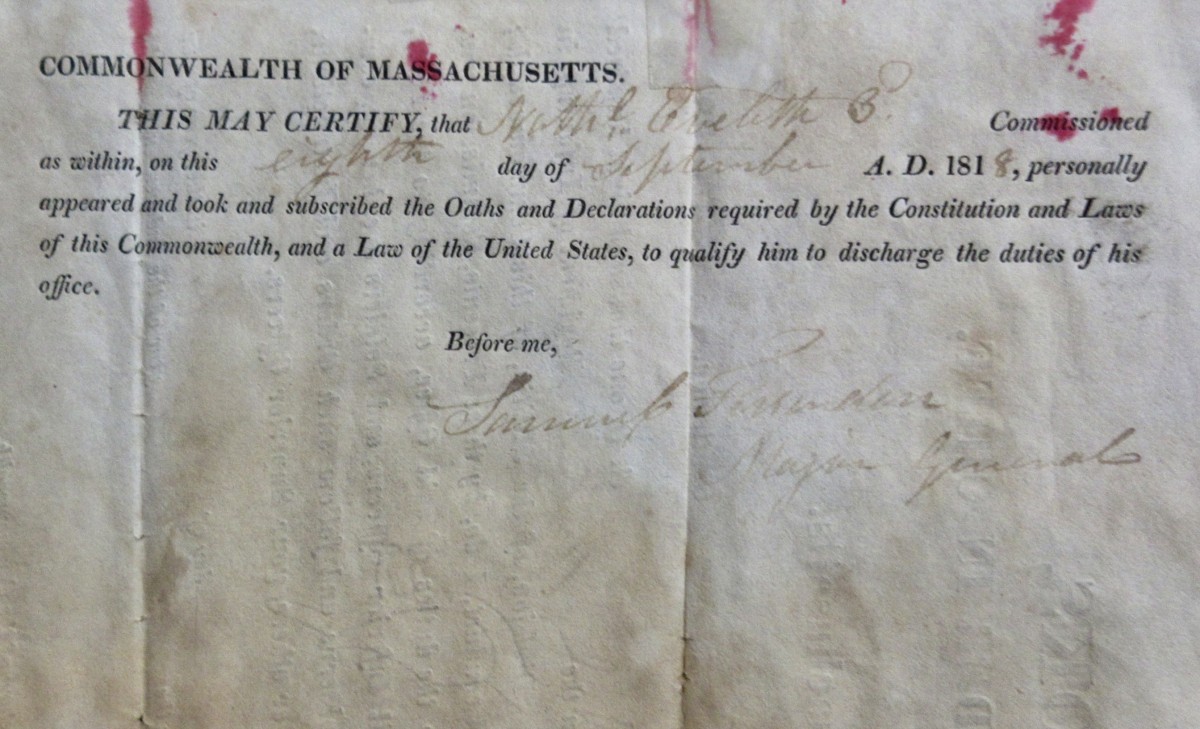 COMMONWEALTH OF MASSACHUSETTS.
THIS MAY CERTIFY, that Nath.l Eveleth 3.d Commissioned
as within, on this eighth day of September A. D. 1818, personally
appeared and took and subscribed the Oaths and Declarations required by the Constitution and Laws
of this Commonwealth, and a Law of the United States, to qualify him to discharge the duties of his
office.
Before me,
Samuel
Major General